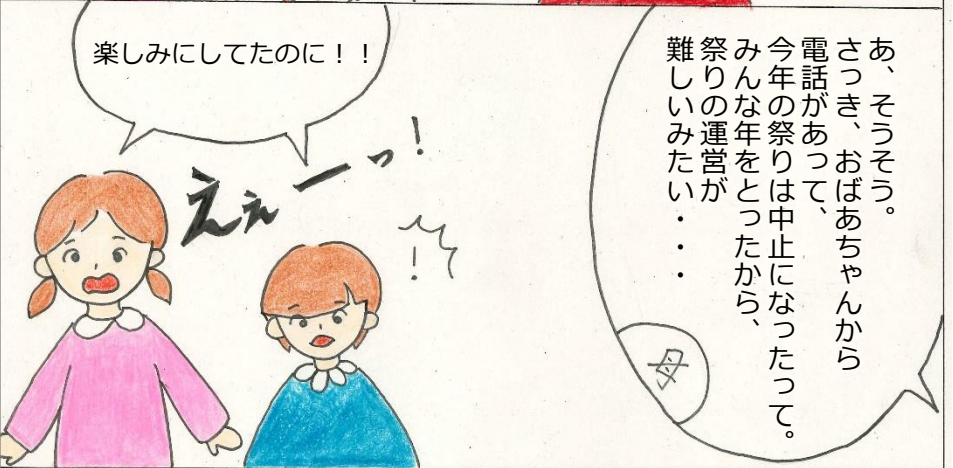 あ、そうそう。
さっき、おばあちゃんから
電話があって、
今年の祭りは中止になったって。
みんな年をとったから、
祭りの運営が
難しいみたい・・・
母
楽しみにしてたのに！！
えぇーっ！
！